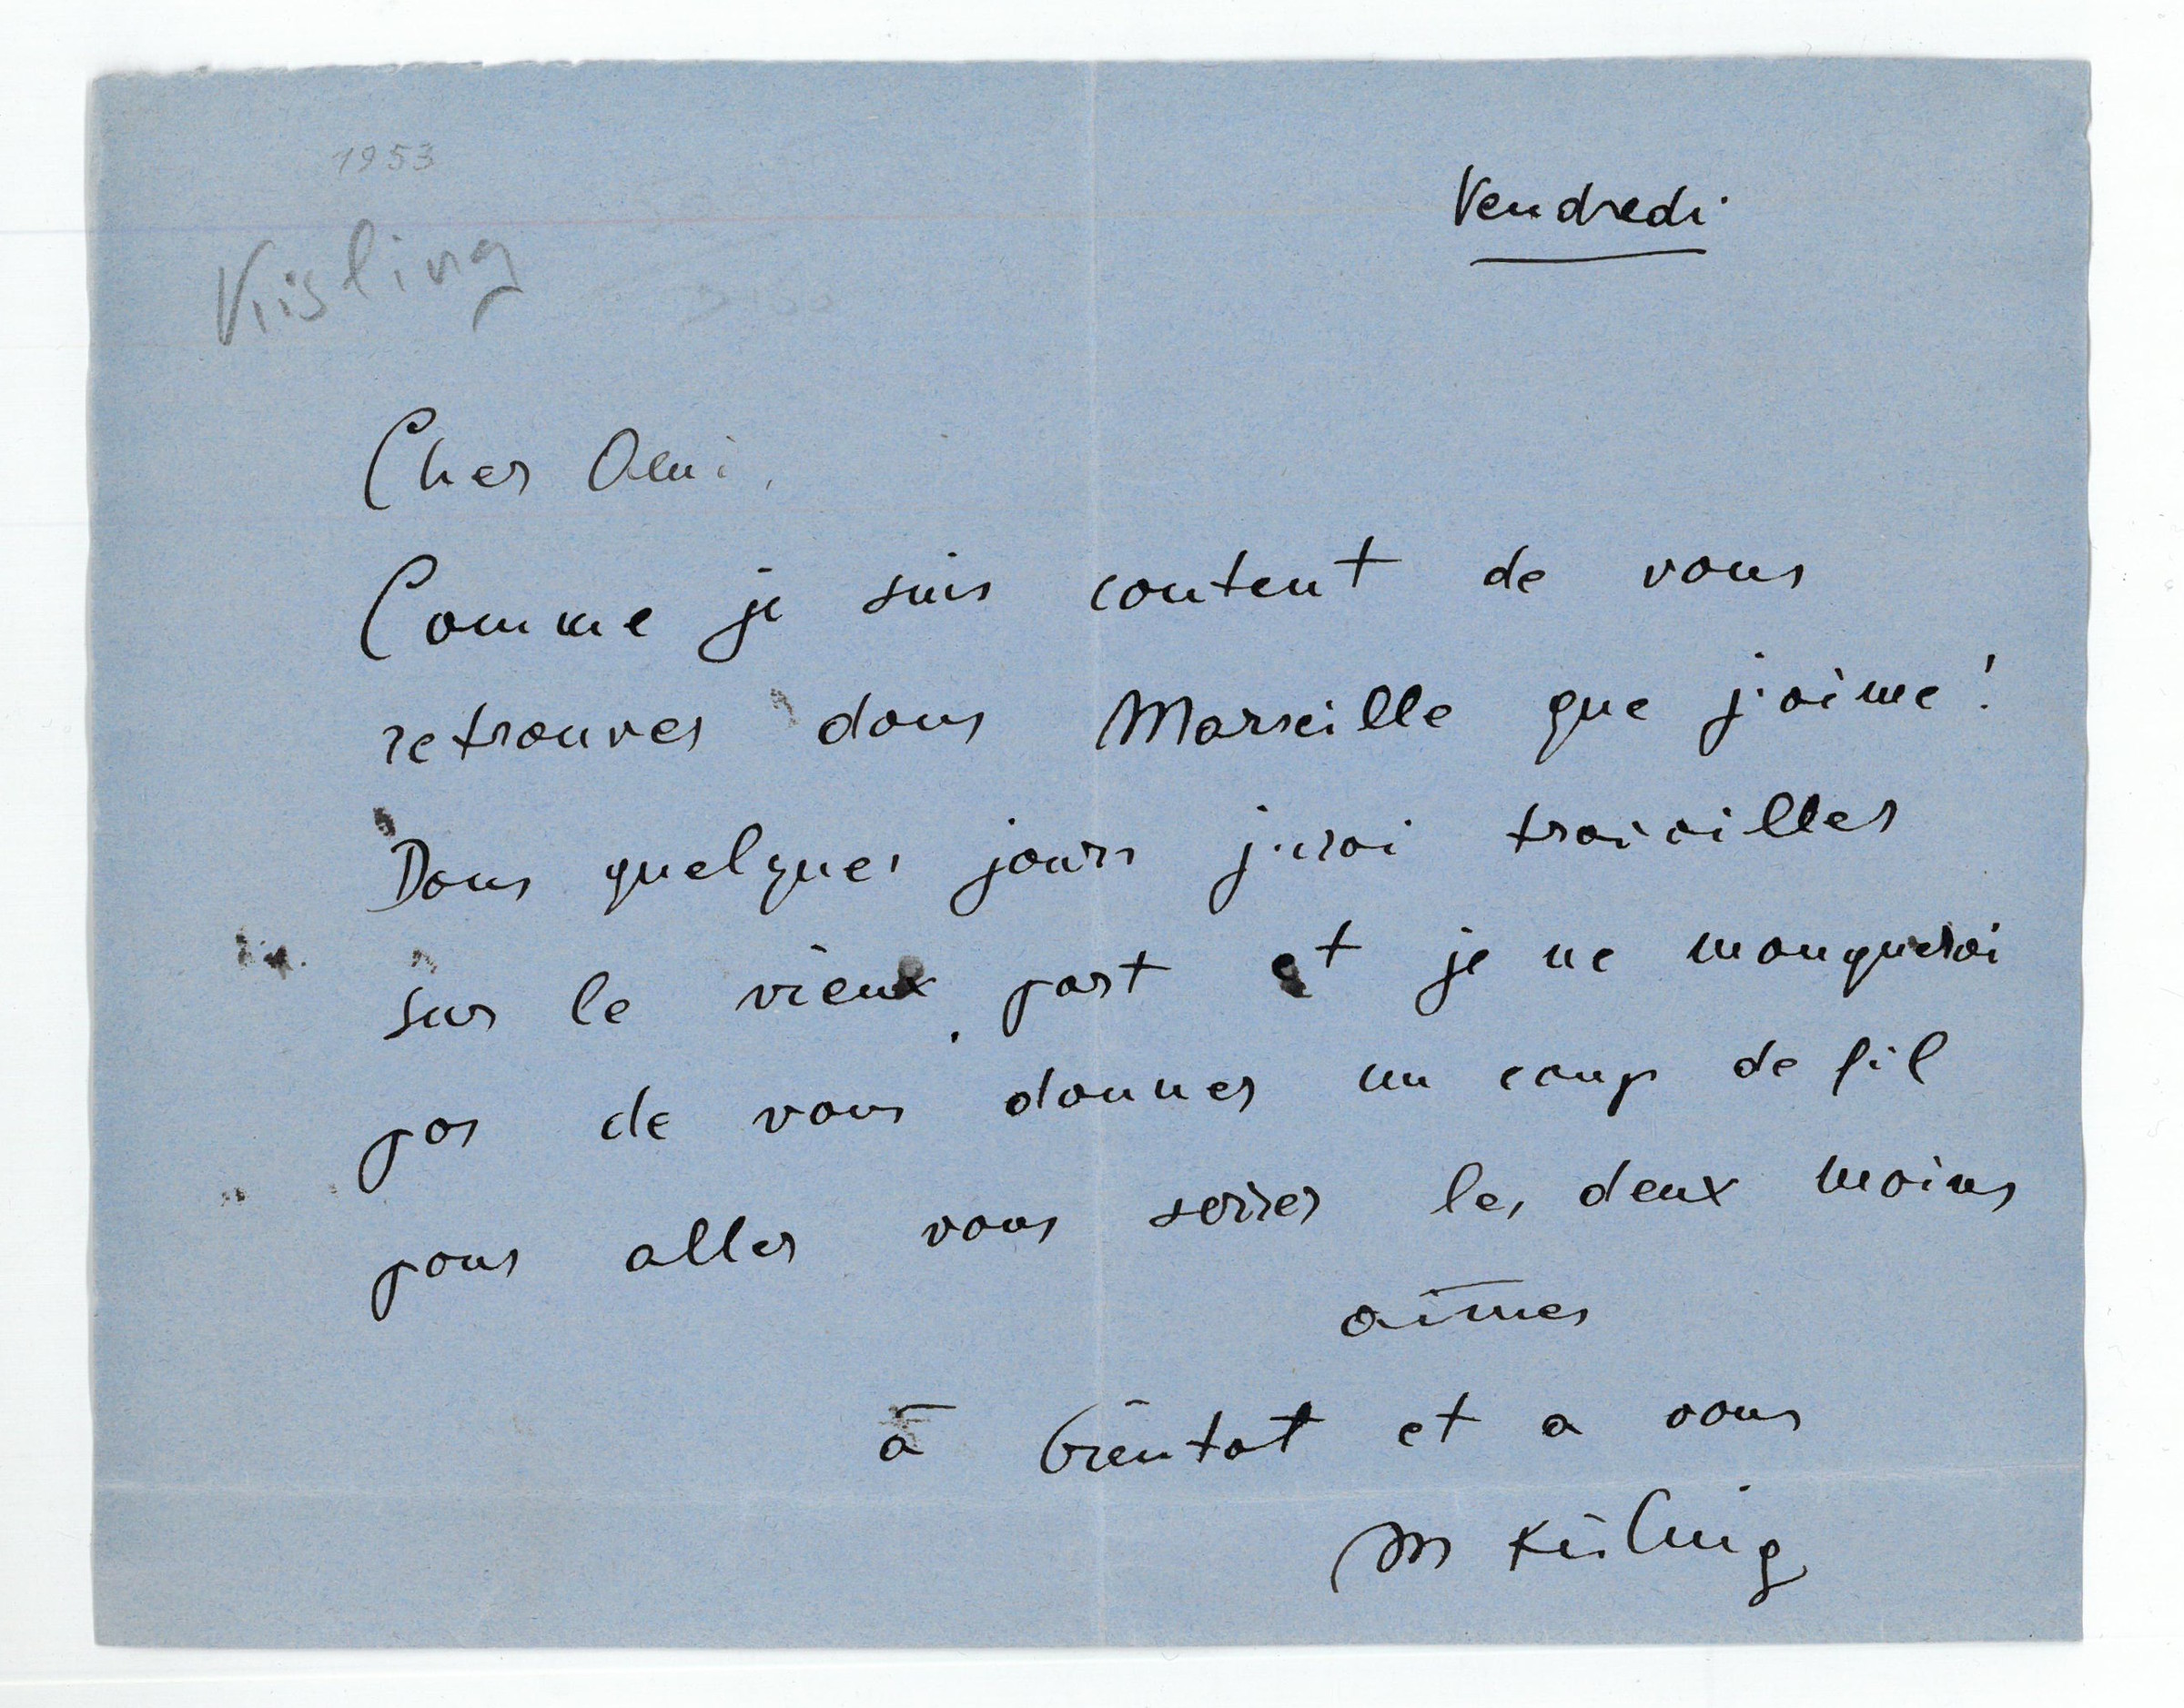 1953
Vendredi
Kisling
Cher Ami,
Comme je suis content de vous
retrouver dans Marseille que j'aime!
Dans quelques jours j'irai travailler
sur le vieux port et je ne manquerai
pas de vous donner un coup de fil
pour aller vous serrer les deux mains
aimes
à bientot et a vous
M Kisling